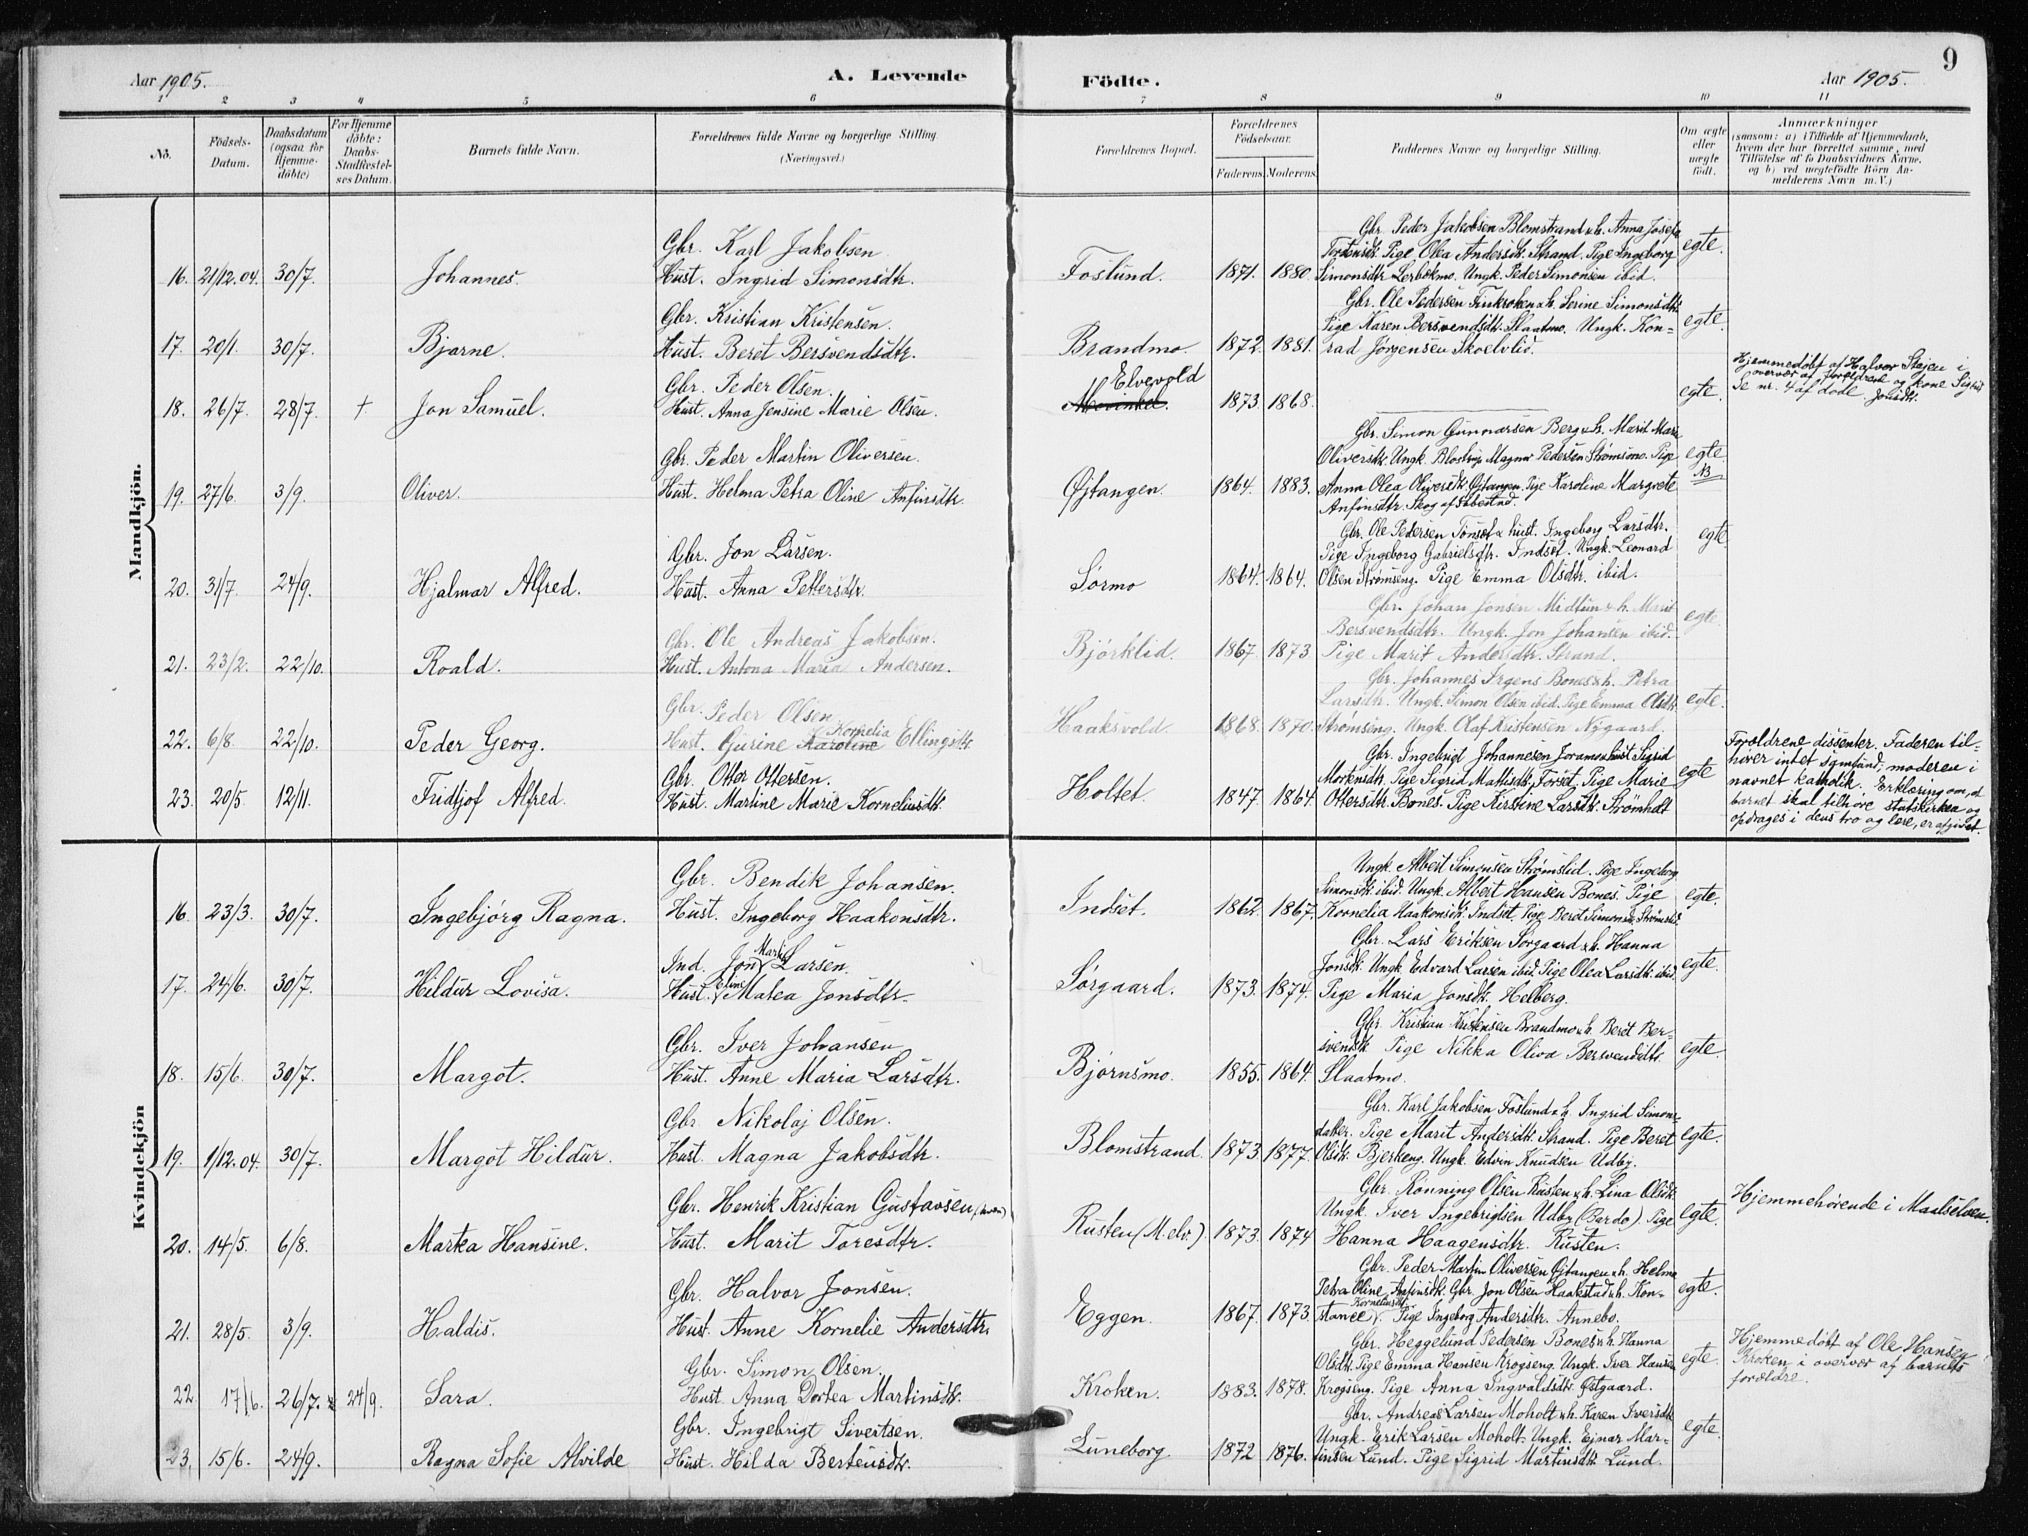 Aar 1905. A. Levende Födte. Aar 1905. 9
1 2 3 4 5 6 7 8 9 10 11
No.
Födsels-Datum.
Daabsdatum (ogsaa for Hjemme-döbte)
For Hjemme döbte: Daabs-Stadfæstel-ses Datum.
Barnets fulde Navn.
Forældrenes fulde Navne og borgerlige Stilling.
(Næringsvei.)
Forældrenes Bopæl.
Forældrenes Födselsaar.
Faderens. Moderens.
Faddernes Navne og borgerlige Stilling.
Om ægte eller uægte født.
Anmærkninger
(saasom: a) i Tilfælde af Hjemmedaab,
hvem der har forrettet samme, med
Tilföielse af to Daabsvidners Navne.
og b) ved uægtefödte Börn An-
melderens Navn m. V.)
Mandkjön.
Gbr. Karl Jakobsen
16. 21/12.04. 30/7. Johannes. Hust. Ingrid Simonsdtr. Foslund. 1871. 1880 egte.
Gbr. Peder Jakobsen Blomstrand & h. Anna Josefa
Tordensdtr. Pige Olea Andersdtr. Strand. Pige Ingeborg
Simonsdtr Lerbekmo. Ungk. Peder Simonsen ibid.
Gbr. Kristian Kristensen.
17. 20/1. 30/7. Bjarne. Hust. Beret Bersvendsdtr. Brandmo. 1872. 1881. egte.
Gbr. Ole Pedersen Finkroken & h. Serine Simonsdtr.
Pige Karen Bersvendsdtr. Slaatmo. Ungk. Kon-
rad Jørgensen Skoelvlid.
Gbr. Peder Olsen.
18. 26/7. 28/7. + Jon Samuel. Hust. Anna Jensine Marie Olsen. Elvevold 1873. 1868. egte.
Hjemmedøbt af Halvor Stejen i
overvær af forældrene og kone Sigrid
Se nr. 4 af døde. Jonsdtr.
Gbr. Peder Martin Oliversen.
19. 27/6. 3/9. Oliver. Hust. Helma Petra Oline Anfinsdtr. Øjtangen. 1864. 1883. egte NB
Gbr. Simon Gunnarsen Berg & h. Marit Marie
Oliversdtr. Ungk. Magnar Pedersen Strømsmo. Pige
Anna Olea Oliversdtr. Øjtangen. Pige Karoline Margrete
Anfinsdtr. Skog af Ibestad.
Gbr. Jon Larsen.
20. 31/7. 24/9. Hjalmar Alfred. Hust. Anna Pettersdtr. Sørmo 1864. 1864. egte
Gbr. Ole Pedersen Tonset & hust. Ingeborg Larsdtr.
Pige Ingeborg Gabrielsdtr. Indset. Ungk. Leonard
Olsen Strømseng. Pige Emma Olsdtr. ibid.
Gbr. Ole Andreas Jakobsen.
21. 23/2. 22/10. Roald. Hust. Antona Maria Andersen. Bjørklid. 1867. 1873 egte.
Gbr. Johan Jonsen Midtun & h. Marit
Bersvendsdtr. Ungk. Jon Johansen ibid.
Pige Marit Andersdtr. Strand.
Gbr. Peder Olsen
22. 6/8. 22/10. Peder Georg. Hust. Gurine Karoline Kornelia Ellingsdtr Haaksvold. 1868. 1870. egte.
Gbr. Johannes Irgens Bones & h. Petra
Larsdtr. Ungk. Simon Olsen ibid. Pige Emma Olsdtr.
Strømseng. Ungk. Olaf Kristensen Nygaard.
Gbr. Otter Ottersen.
23. 20/5. 12/11. Fridtjof Alfred. Hust. Martine Marie Korneliusdtr. Holtet. 1847. 1864. egte
Gbr. Ingebrigt Johannesen Foramo & hust. Sigrid
Mortensdtr. Pige Sigrid Mathisdtr. Forset. Pige Marie
Ottersdtr. Bones. Pige Kirstine Larsdtr. Strømholt
Forældrene dissenter. Faderen til-
hører intet samfund; moderen i
navnet katholik. Erklæring om, at
barnet skal tilhøre statskirken og
opdrages i dens tro og lære, er afgivet.
Kvindekjön
Gbr. Bendik Johansen.
16. 23/3. 30/7. Ingebjørg Ragna. Hust. Ingeborg Haakonsdtr. Indset. 1862. 1867. egte.
Ungk. Albert Simonsen Strømslid. Pige Ingeborg
Simonsdtr. ibid. Ungk. Albert Hansen Bones. Pige
Kornelia Haakonsdtr. Indset. Pige Beret Simonsdtr. Strømslid.
Ind. Jon Martin Larsen.
17. 24/6. 30/7. Hildur Lovisa. Hust. Eline Matea Jonsdtr. Sørgaard. 1873. 1874. egte.
Gbr. Lars Eriksen Sørgaard & h. Hanna
Jonsdtr. Ungk. Edvard Larsen ibid. Pige Olea Larsdtr. ibid.
Pige Maria Jonsdtr. Helberg.
Gbr. Iver Johansen
18. 15/6. 30/7. Margot. Hust. Anne Maria Larsdtr. Bjørnsmo. 1855. 1864. egte.
Gbr. Kristian Kristensen Brandmo & h. Beret Ber-
svendsdtr. Pige Nikka Oliva Bersvendsdtr.
Slaatmo.
Gbr. Nikolaj Olsen.
19. 1/12.04. 30/7. Margot Hildur. Hust. Magna Jakobsdtr. Blomstrand 1873. 1877. egte.
Gbr. Karl Jakobsen Foslund & h. Ingrid Simons-
datter. Pige Marit Andersdtr. Strand. Pige Beret
Olsdtr. Bjerkeng. Ungk. Edvin Knudsen Udby.
Gbr. Henrik Kristian Gustavsen
20. 14/5. 6/8. Marka Hansine. Hust. Marit Toresdtr. Rusten (M.elv.) 1873. 1874 egte.
Gbr. Rønning Olsen Rusten & h. Lina Olsdtr.
Ungk. Iver Ingebrigtsen Udby (Bardo) Pige
Hanna Haagensdtr. Rusten.
Hjemmehørende i Maalselven
Gbr. Halvor Jonsen.
21. 28/5. 3/9. Haldis. Hust. Anne Kornelie Andersdtr. Eggen. 1867. 1873. egte.
Gbr. Peder Martin Oliversen Øjtangen & h. Helma
Petra Oline Anfinsdtr. Gbr. Jon Olsen Haakstad & h. Kon-
stance Korneliusdtr. Pige Ingeborg Andersdtr. Annebo.
Gbr. Simon Olsen.
22 17/6. 26/7. & 24/9. Sara. Hust. Anna Dortea Martinsdtr. Kroken. 1883. 1878. egte.
Gbr. Heggelund Pedersen Bones & h. Hanna
Olsdtr. Pige Emma Hansen Krogseng. Ungk. Iver Hansen
Krogseng. Pige Anna Ingvaldsdtr. Østgaard.
Hjemmedøbt af Ole Hansen
Kroken i overvær af barnets
forældre.
Gbr. Ingebrigt Sivertsen.
23. 15/6. 24/9. Ragna Sofie Alvilde Hust. Hilda Bertensdtr. Luneborg 1872 1876. egte.
Gbr. Andreas Larsen Moholt & h. Karen Iversdtr.
Ungk. Erik Larsen Moholt. Ungk. Einar Mar-
tinsen Lund. Pige Sigrid Martinsdtr. Lund.